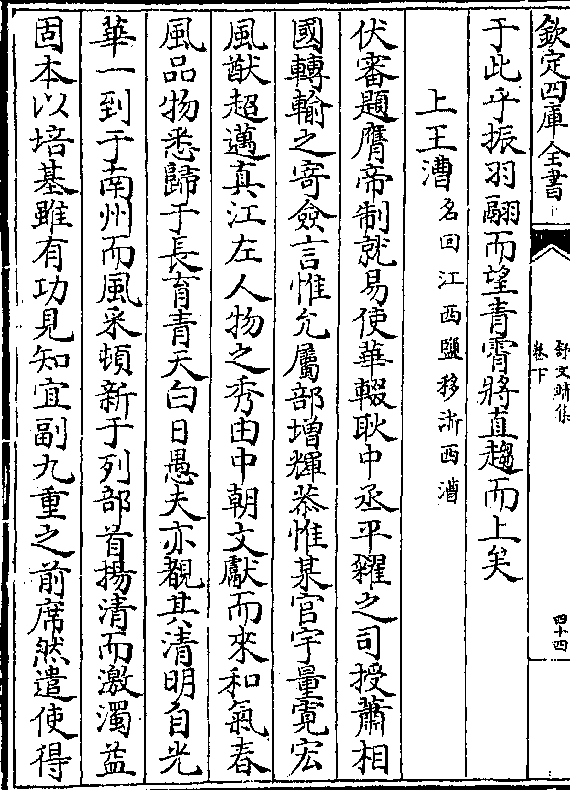 欽定四庫全書
舒文靖集
卷下
四十四
于此乎振羽翮而望青霄將直趨而上矣
上王漕名回江西鹽移浙西漕
伏審題膺帝制就易使華輟耿中丞平糴之司授蕭相
國轉輸之寄僉言惟允屬部增輝恭惟某官宇量寛宏
風猷超邁真江左人物之秀由中朝文獻而來和氣春
風品物悉歸于長育青天白日愚夫亦覩其清明自光
華一到于南州而風采頓新于列部首揚清而激濁益
固本以培基雖有功見知宜副九重之前席然遣使得